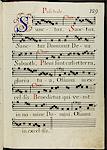 129
Sanctus, Sanctus,
Sanctus Dominus De us
Sabaoth, Pleni sunt cæli et terra,
gloria tua, Osanna in excelsis.
Benedictus qui ve nit
in nomine Domini, Osanna
in excelsis.